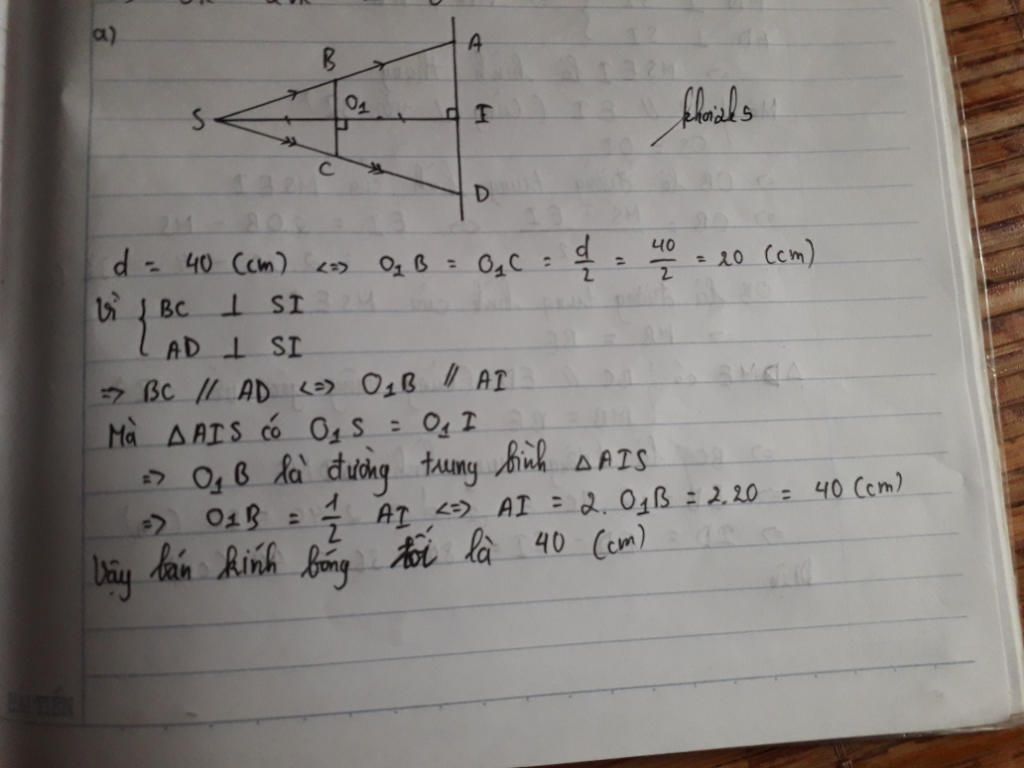 a)
B
A
S
O₁
I
khoiak5
C
D
d = 40 (cm) <=> O₁B = O₁C = d/2 = 40/2 = 20 (cm)
Vì { BC ⊥ SI
AD ⊥ SI
=> BC // AD <=> O₁B // AI
Mà △AIS có O₁S = O₁I
=> O₁B là đường trung bình △AIS
=> O₁B = 1/2 AI <=> AI = 2.O₁B = 2.20 = 40 (cm)
Vậy bán kính bóng tối là 40 (cm)